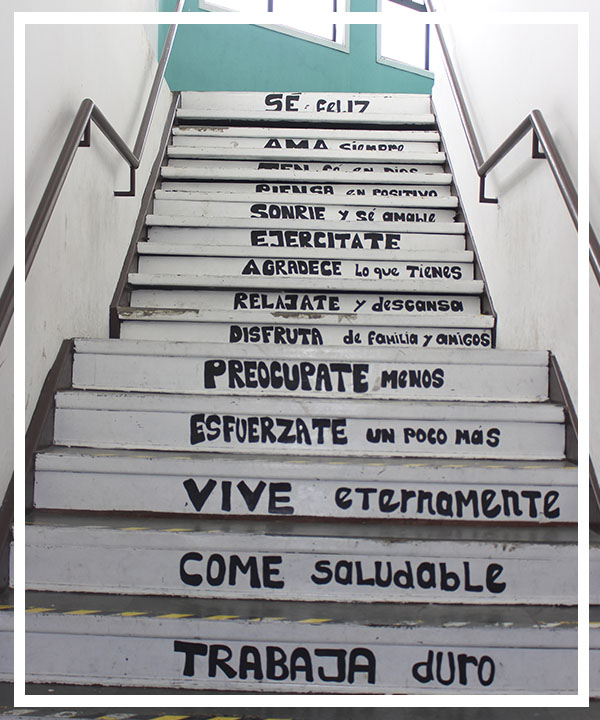 SÉ FELIZ
AMA siempre
TEN fé en Dios
PIENSA en POSITIVO
SONRIE y sé amable
EJERCITATE
AGRADECE Lo que Tienes
RELAJATE y descansa
DISFRUTA de familia y amigos
PREOCUPATE menos
ESFUERZATE un poco más
VIVE eternamente
COME saludable
TRABAJA duro